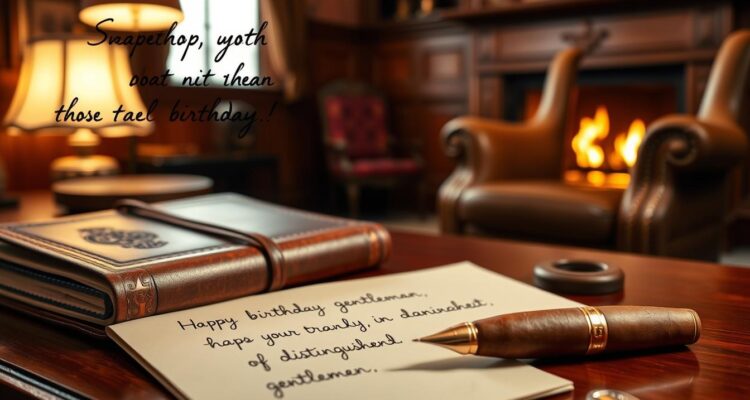 Snapethop, yoth
boat nit thean
those tael birthday.!
Happy birthday gentleman,
haps your tranly, in daninahest,
of distinguished.
gentlemen,